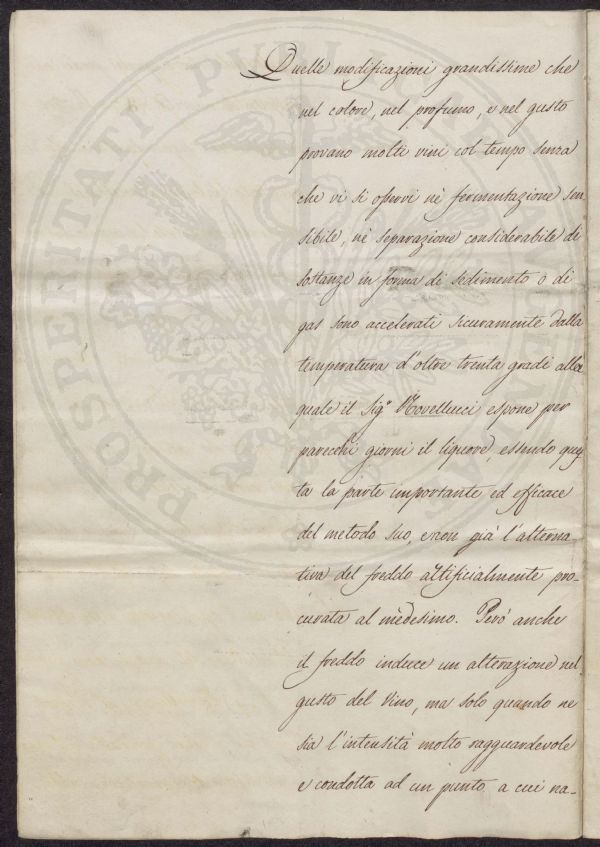 Quelle modificazioni grandissime che
nel colore, nel profumo, e nel gusto
provano molti vini col tempo senza
che vi si osservi nè fermentazione sen
sibile, nè separazione considerabile di
sostanze in forma di sedimento o di
gas sono accelerati sicuramente dalla
temperatura d'oltre trenta gradi alla
quale il Sigr Novellucci espone per
parecchi giorni il liquore, essendo ques
ta la parte importante ed efficace
del metodo suo, e non già l'alterna-
tiva del freddo artificialmente pro-
curata al mèdesimo. Però anche
il freddo induce un alterazione nel
gusto del Vino, ma solo quando ne
sia l'intensità molto ragguardevole
e condotta ad un punto a cui na-
PROSPERITATI PUBLICAE AUGENDAE